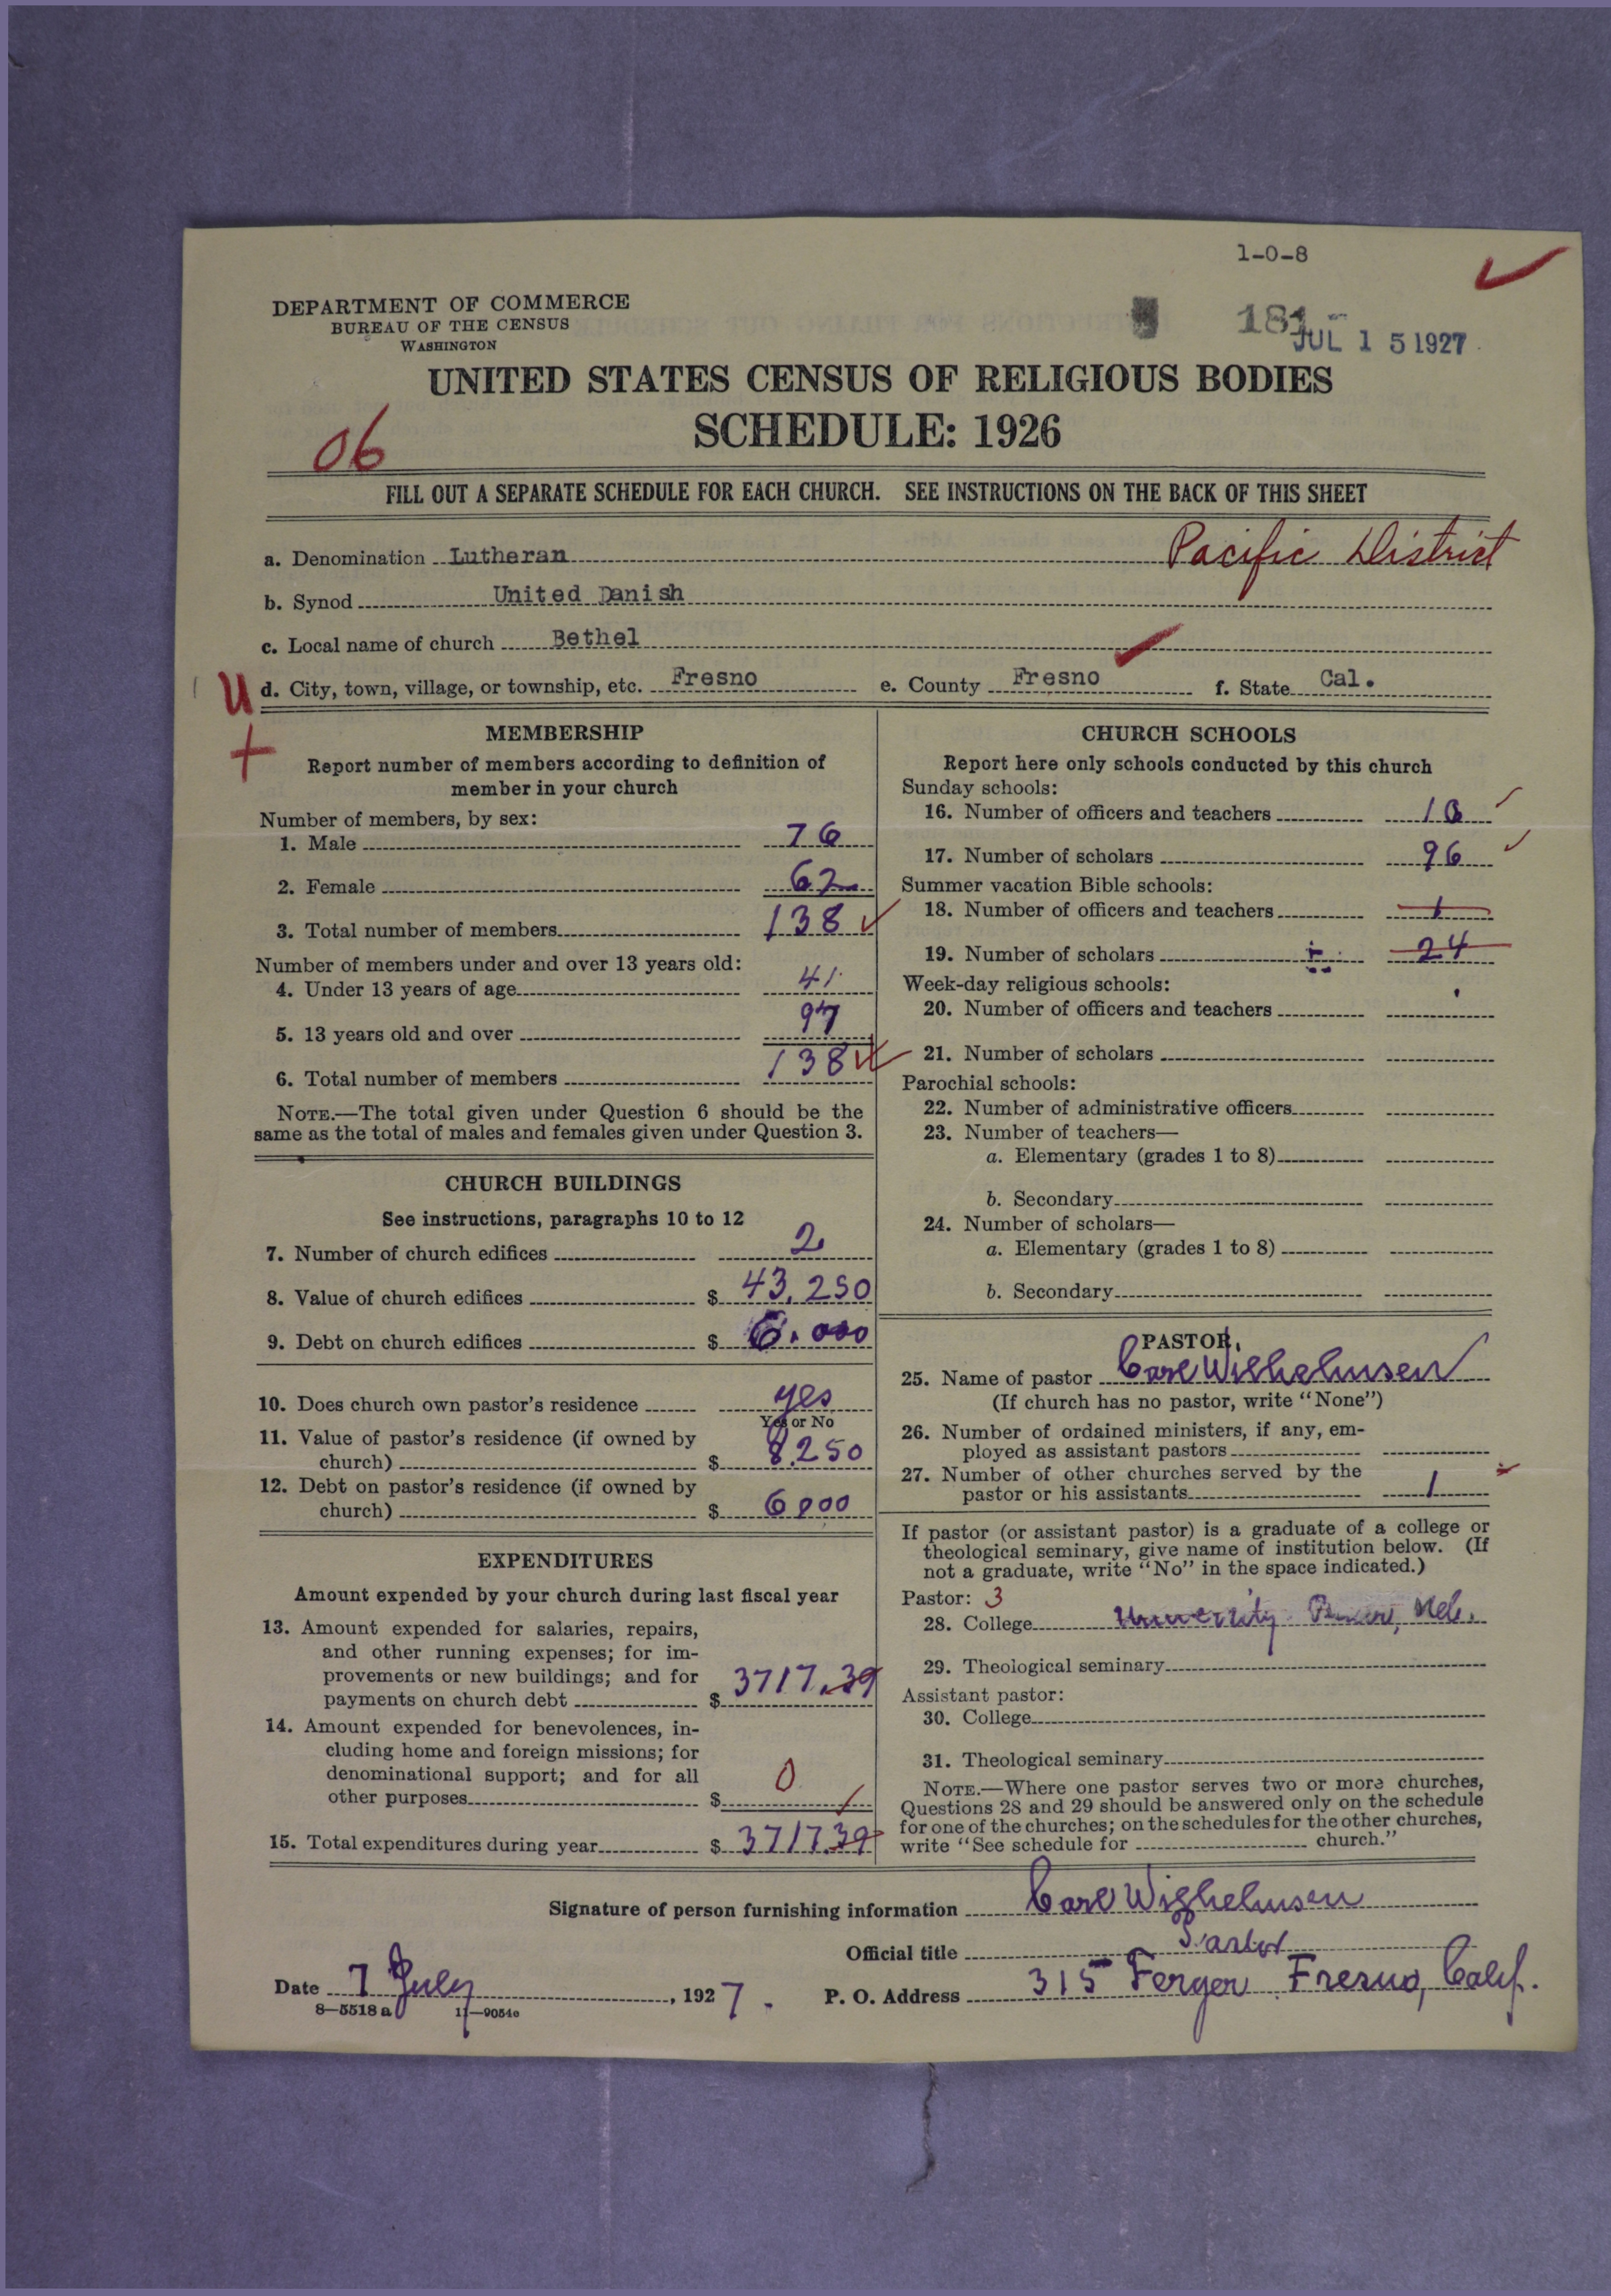 1-0-8
DEPARTMENT OF COMMERCE
BUREAU OF THE CENSUS
WASHINGTON
181
JUL 15 1927
UNITED STATES CENSUS OF RELIGIOUS BODIES
SCHEDULE: 1926
06
FILL OUT A SEPARATE SCHEDULE FOR EACH CHURCH. SEE INSTRUCTIONS ON THE BACK OF THIS SHEET
Pacific District
a. Denomination Lutheran
b. Synod United Danish
c. Local name of church Bethel
U d. City, town, village, or township, etc. Fresno e. County Fresno f. State Cal.
+
MEMBERSHIP
Report number of members according to definition of
member in your church
Number of members, by sex:
1. Male 76
2. Female 62
3. Total number of members 138
Number of members under and over 13 years old:
4. Under 13 years of age 41
5. 13 years old and over 97
6. Total number of members 138
NOTE.—The total given under Question 6 should be the
same as the total of males and females given under Question 3.
CHURCH BUILDINGS
See instructions, paragraphs 10 to 12
7. Number of church edifices 2
8. Value of church edifices $ 43,250
9. Debt on church edifices $ 6.000
10. Does church own pastor's residence yes
Yes or No
11. Value of pastor's residence (if owned by
church) $ 8.250
12. Debt on pastor's residence (if owned by
church) $ 6000
EXPENDITURES
Amount expended by your church during last fiscal year
13. Amount expended for salaries, repairs,
and other running expenses; for im-
provements or new buildings; and for
payments on church debt $ 3717.39
14. Amount expended for benevolences, in-
cluding home and foreign missions; for
denominational support; and for all
other purposes $ 0
15. Total expenditures during year $ 3717.39
CHURCH SCHOOLS
Report here only schools conducted by this church
Sunday schools:
16. Number of officers and teachers
17. Number of scholars 96
Summer vacation Bible schools:
18. Number of officers and teachers 1
19. Number of scholars 24
Week-day religious schools:
20. Number of officers and teachers
21. Number of scholars
Parochial schools:
22. Number of administrative officers
23. Number of teachers—
a. Elementary (grades 1 to 8)
b. Secondary
24. Number of scholars—
a. Elementary (grades 1 to 8)
b. Secondary
PASTOR
25. Name of pastor Carl Wilhelmsen
(If church has no pastor, write "None")
26. Number of ordained ministers, if any, em-
ployed as assistant pastors
27. Number of other churches served by the
pastor or his assistants 1
If pastor (or assistant pastor) is a graduate of a college or
theological seminary, give name of institution below. (If
not a graduate, write "No" in the space indicated.)
Pastor: 3
28. College University Neb.
29. Theological seminary
Assistant pastor:
30. College
31. Theological seminary
NOTE.—Where one pastor serves two or more churches,
Questions 28 and 29 should be answered only on the schedule
for one of the churches; on the schedules for the other churches,
write "See schedule for church."
Signature of person furnishing information Carl Wilhelmsen
Official title Pastor
Date 7 July, 1927. P. O. Address 315 Ferger Fresno, Calif.
8-5518 a 11-9054c